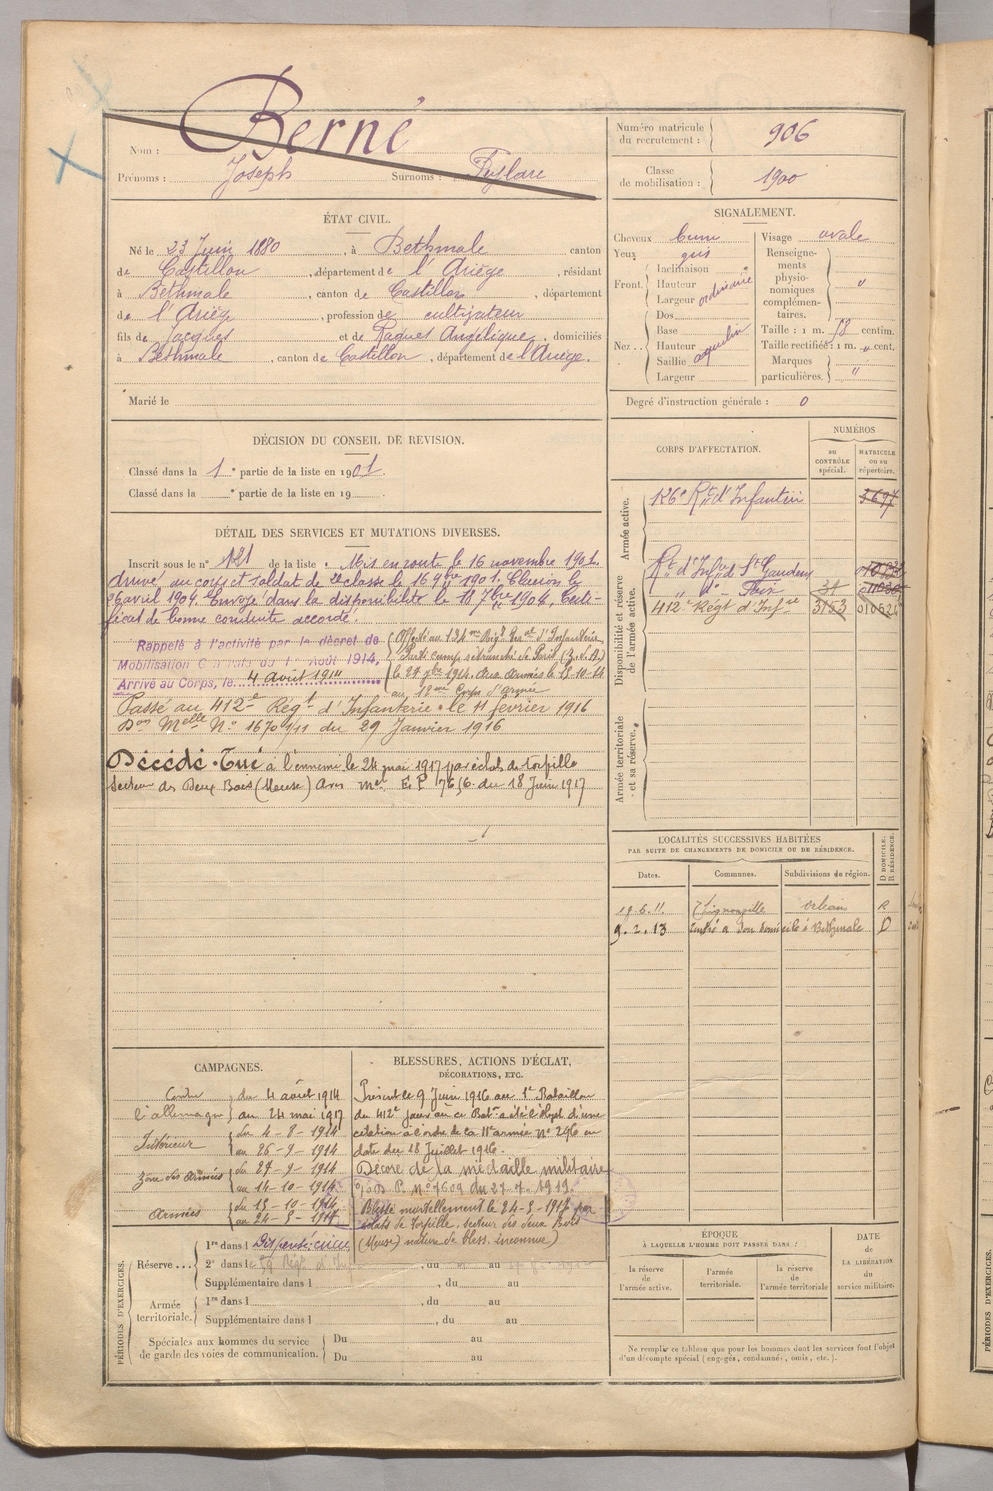 Nom : Berné
Prénoms : Joseph Surnoms : Peylare
Numéro matricule du recrutement : 906
Classe de mobilisation : 1900
ÉTAT CIVIL.
Né le 23 Juin 1880, à Bethmale canton
de Castillon, département de l'Ariège, résidant
à Bethmale, canton de Castillon, département
de l'Ariège, profession de cultivateur
fils de Jacques et de Raques Angélique, domiciliés
à Bethmale, canton de Castillon, département de l'Ariège.
Marié le
SIGNALEMENT.
Cheveux brun
Yeux gris
Front. Inclinaison "
Hauteur
Largeur ordinaire
Nez. Dos
Base
Hauteur
Saillie aquilin
Largeur
Visage ovale
Renseignements physionomiques complémentaires. "
Taille : 1 m. 58 centim.
Taille rectifiée : 1 m. " cent.
Marques particulières. "
Degré d'instruction générale : 0
DÉCISION DU CONSEIL DE REVISION.
Classé dans la 1e partie de la liste en 1901
Classé dans la e partie de la liste en 19
DÉTAIL DES SERVICES ET MUTATIONS DIVERSES.
Inscrit sous le n° 121 de la liste. Mis en route le 16 novembre 1901.
Arrivé au corps et soldat de 2e classe le 16 9bre 1901. Clairon le
26 avril 1904. Envoyé dans la disponibilité le 18 7bre 1904. Certi-
ficat de bonne conduite accordé.
Rappelé à l'activité par le décret de
Mobilisation Générale du 1er Août 1914,
Arrivé au Corps, le 4 août 1914
Affecté au 124me Régt d'Infanterie
Parti camp retranché de Paris (Z.d.A)
le 27 7bre 1914. Aux armées le 15-10-14
au 18me Corps d'armée
Passé au 412e Régt d'Infanterie le 11 février 1916
Don Melle N° 1670 1/11 du 29 Janvier 1916
Décédé. Tué à l'ennemi le 24 mai 1917 par éclats de torpille
secteur des Deux Bois (Meuse) Avis mel E.P 7656 du 18 Juin 1917
CORPS D'AFFECTATION.
NUMÉROS
au CONTRÔLE spécial.
MATRICULE ou au répertoire.
Armée active.
126e Rt d'Infanterie 3697
Disponibilité et réserve de l'armée active.
Rt d'Infie de St Gaudens
" d° Foix 31
412e Régt d'Infie 3153 010524
Armée territoriale et sa réserve.
LOCALITÉS SUCCESSIVES HABITÉES
PAR SUITE DE CHANGEMENTS DE DOMICILE OU DE RÉSIDENCE.
Dates. Communes. Subdivisions de région. D DOMICILE. R RÉSIDENCE.
19.5.11. Orléans R
9.2.13 Rentré à son domicile à Bethmale D
CAMPAGNES.
Contre l'allemagne du 4 août 1914
au 24 mai 1917
Intérieur du 4-8-1914
au 26-9-1914
Zone des Armées du 27-9-1914
au 14-10-1914
Armées du 15-10-1914
au 24-5-1917
BLESSURES, ACTIONS D'ÉCLAT,
DÉCORATIONS, ETC.
Présent le 9 Juin 1916 au 1er Bataillon
du 412e jour où ce Baton a été l'objet d'une
citation à l'ordre de la IIe armée N° 296 en
date du 18 Juillet 1916.
Décoré de la médaille militaire
P. n° 7609 du 27.7.1919.
Blessé mortellement le 24-5-1917 par
éclats de torpille, secteur des deux Bois
(Meuse) nature de bless. inconnue)
PÉRIODES D'EXERCICES.
Réserve... 1re dans l Dispensé
2e dans le 59 Régt d'Inf , du au
Supplémentaire dans l , du au
Armée territoriale. 1re dans l , du au
Supplémentaire dans l , du au
Spéciales aux hommes du service
de garde des voies de communication. Du au
Du au
ÉPOQUE
À LAQUELLE L'HOMME DOIT PASSER DANS :
la réserve de l'armée active.
l'armée territoriale.
la réserve de l'armée territoriale
DATE DE LA LIBÉRATION du service militaire.
Ne remplir ce tableau que pour les hommes dont les services font l'objet
d'un décompte spécial (engagés, condamnés, omis, etc.).
PÉRIODES D'EXERCICES.